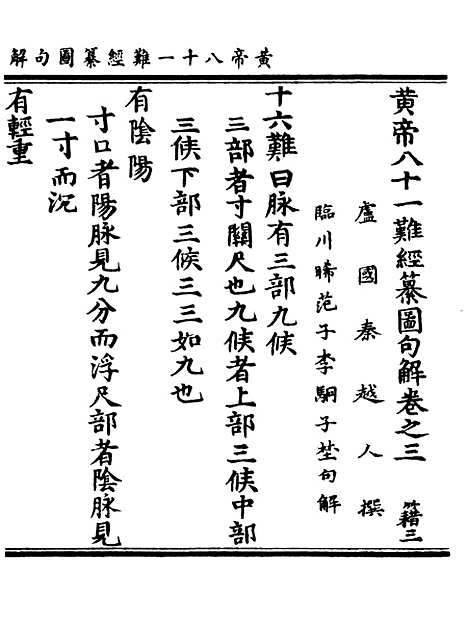 黄帝八十一難經纂圖句解
黄帝八十一難經纂圖句解卷之三　籍三
盧國秦越人撰
臨川晞范子李駉子埜句解
十六難曰脉有三部九候
三部者寸關尺也九候者上部三候中部
三候下部三候三三如九也
有陰陽
寸口者陽脉見九分而浮尺部者陰脉見
一寸而沉
有輕重